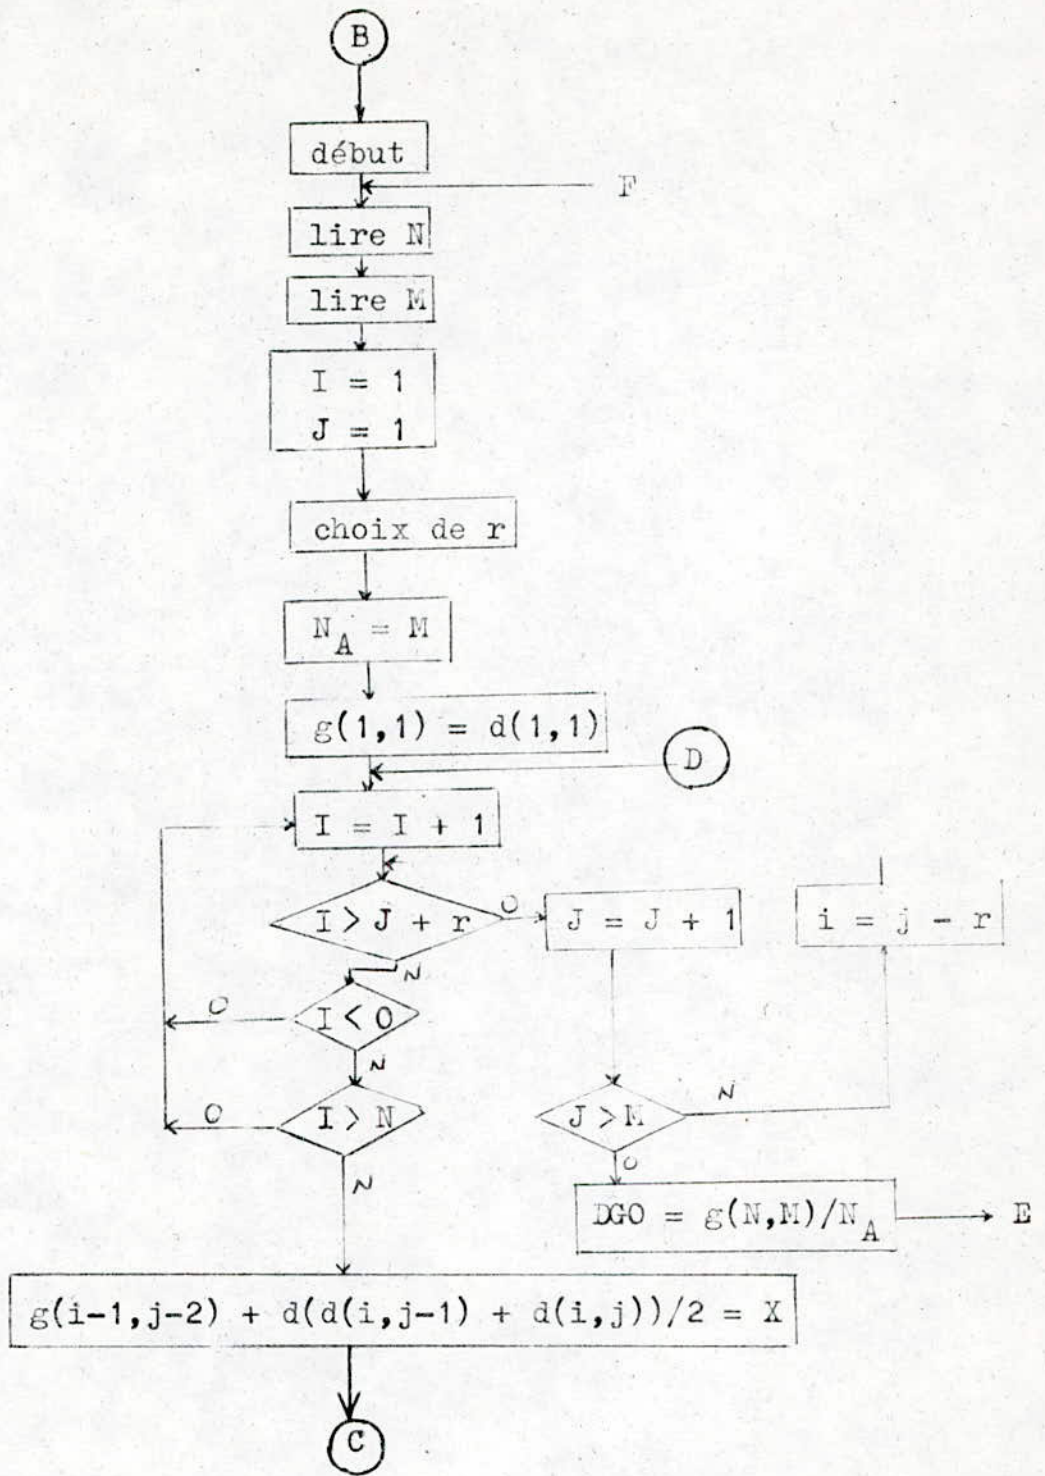 B
début
F
lire N
lire M
I = 1
J = 1
choix de r
N_A = M
g(1,1) = d(1,1)
D
I = I + 1
I > J + r
O
J = J + 1
i = j - r
N
I < 0
O
N
I > N
O
N
J > M
N
O
DGO = g(N,M)/N_A
E
g(i-1,j-2) + d(d(i,j-1) + d(i,j))/2 = X
C